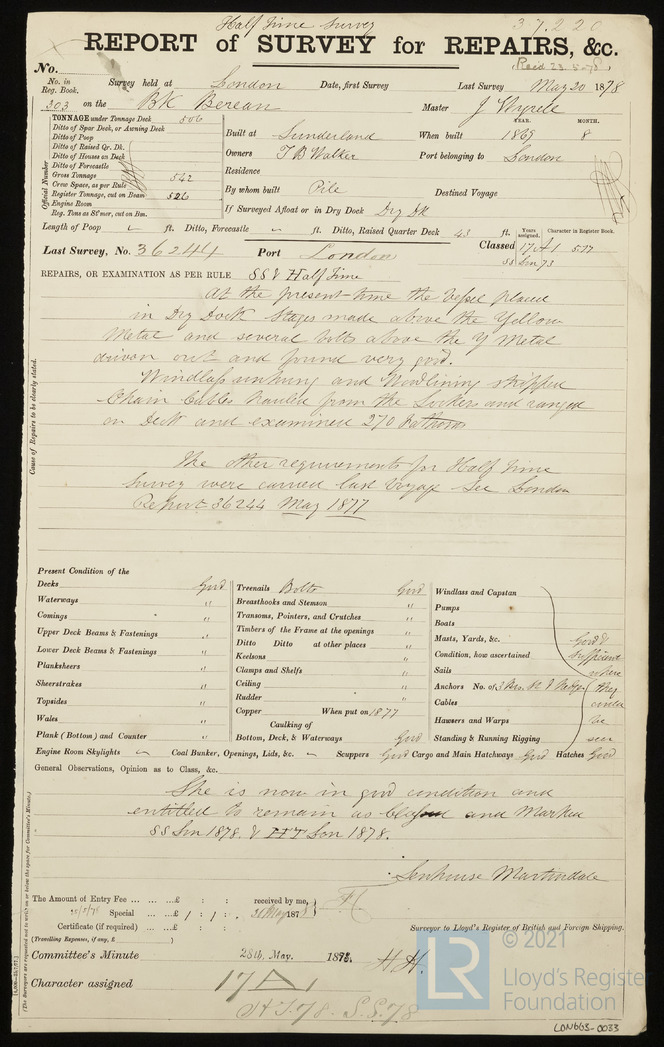 Half Time Survey
37,220
REPORT of SURVEY for REPAIRS, &c.
No.
Recd 23.5.78
No. in Reg. Book. Survey held at London Date, first Survey Last Survey May 20 1878
203 on the BK Berean Master J Wyrill
TONNAGE under Tonnage Deck 506
Ditto of Spar Deck, or Awning Deck
Ditto of Poop
Ditto of Raised Qr. Dk.
Ditto of Houses on Deck
Ditto of Forecastle
Gross Tonnage 542
Crew Space, as per Rule
Register Tonnage, cut on Beam 526
Engine Room
Reg. Tons as St'mer, cut on Bm.
Official Number
Built at Sunderland When built YEAR. 1869 MONTH. 8
Owners T B Walker Port belonging to London
Residence
By whom built Pile Destined Voyage
If Surveyed Afloat or in Dry Dock Dry Dk
Length of Poop ft. Ditto, Forecastle ft. Ditto, Raised Quarter Deck 43 ft.
Years assigned. Character in Register Book.
Last Survey, No. 36244 Port London Classed 17 A1 5.77
SS Lon 73
REPAIRS, OR EXAMINATION AS PER RULE SS & Half Time
At the present time the vessel placed
in Dry Dock Stages made above the Yellow
Metal and several bolts above the Y Metal
driven out and found very good.
Windlass unhung and Woodlining stripped
Chain Cables hauled from the Lockers and ranged
on Deck and examined 270 Fathoms
The other requirements for Half Time
Survey were carried last Voyage See London
Report 36244 May 1877
Cause of Repairs to be clearly stated.
Present Condition of the
Decks Good
Waterways "
Comings "
Upper Deck Beams & Fastenings "
Lower Deck Beams & Fastenings "
Planksheers "
Sheerstrakes "
Topsides "
Wales "
Plank (Bottom) and Counter "
Treenails Bolts Good
Breasthooks and Stemson "
Transoms, Pointers, and Crutches "
Timbers of the Frame at the openings "
Ditto Ditto at other places "
Keelsons "
Clamps and Shelfs "
Ceiling "
Rudder "
Copper When put on 1877
Caulking of
Bottom, Deck, & Waterways Good
Windlass and Capstan
Pumps
Boats
Masts, Yards, &c.
Condition, how ascertained
Sails
Anchors No. of 3 Brs.
Cables
Hawsers and Warps
Standing & Running Rigging
Good &
sufficient
where
they
could
be
seen
Engine Room Skylights Coal Bunker, Openings, Lids, &c. Scuppers Good Cargo and Main Hatchways Good Hatches Good
General Observations, Opinion as to Class, &c.
She is now in good condition and
entitled to remain as classed and Marked
SS Lon 1878. & HT Lon 1878.
Senhouse Martindale
The Amount of Entry Fee ... ... ...£ : : received by me,
Special ... ...£ 1 : 1 : . 187
Certificate (if required) ... ...£ : :
(Travelling Expenses, if any, £ )
Surveyor to Lloyd's Register of British and Foreign Shipping.
Committee's Minute 28th. May. 1878.
H.H.
Character assigned 17 A 1
H.T.78. S.S.78
© 2021
LR
Lloyd's Register
Foundation
LON663-0033